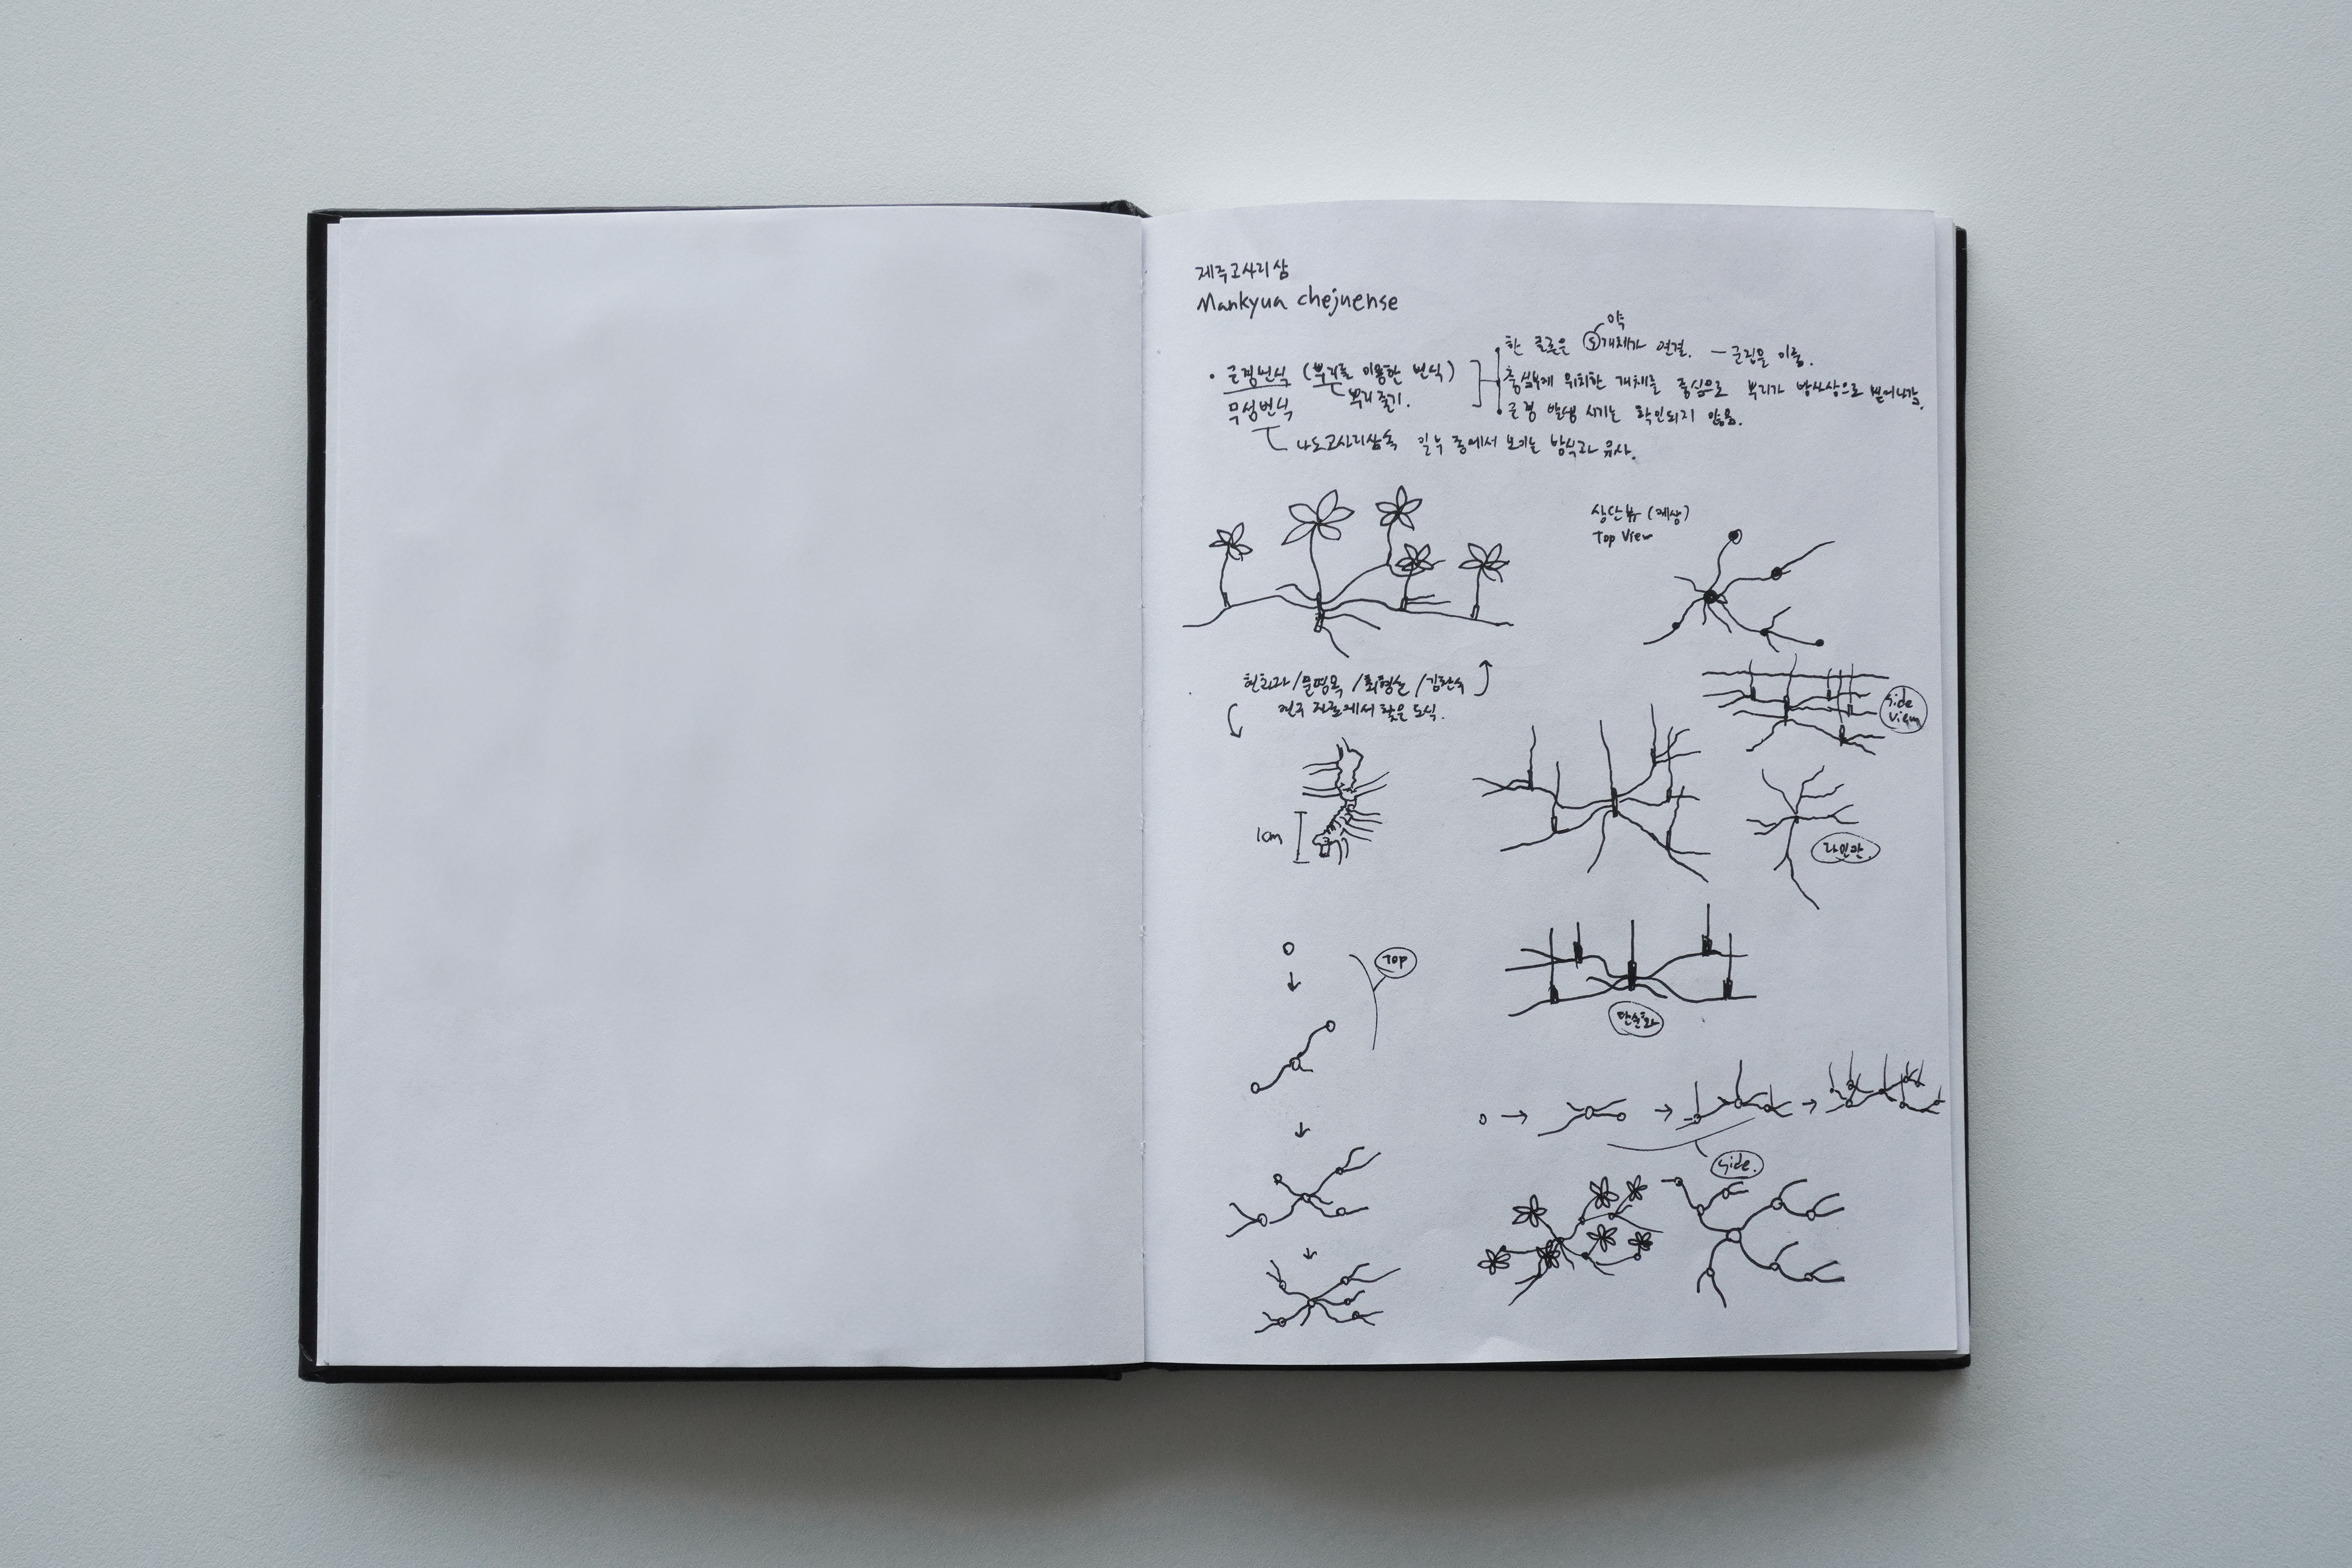 제주고사리삼
Mankyua chejuense
약
한 클론은 ⑤개체가 연결. — 군집을 이룸.
• 근경번식 (뿌리를 이용한 번식)
중심부에 위치한 개체를 중심으로 뿌리가 방사상으로 뻗어나감.
무성번식
뿌리줄기.
• 근경 발생 시기는 확인되지 않음.
나도고사리삼속 일부 종에서 보이는 방식과 유사.
상단뷰 (예상)
Top View
현화자/문명옥/최형순/김찬수
연구 자료에서 찾은 도식.
side
view
1cm
라인만.
Top
단순화
side.